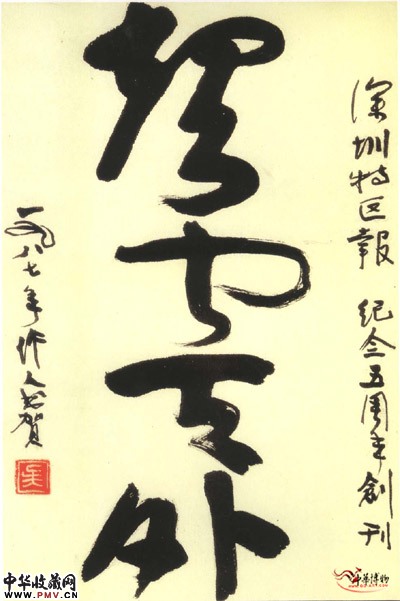 深圳特区報 紀念五周年創刊
天外
一九八七年 作人书贺
中华收藏网
www.PMV.cn
中华博物